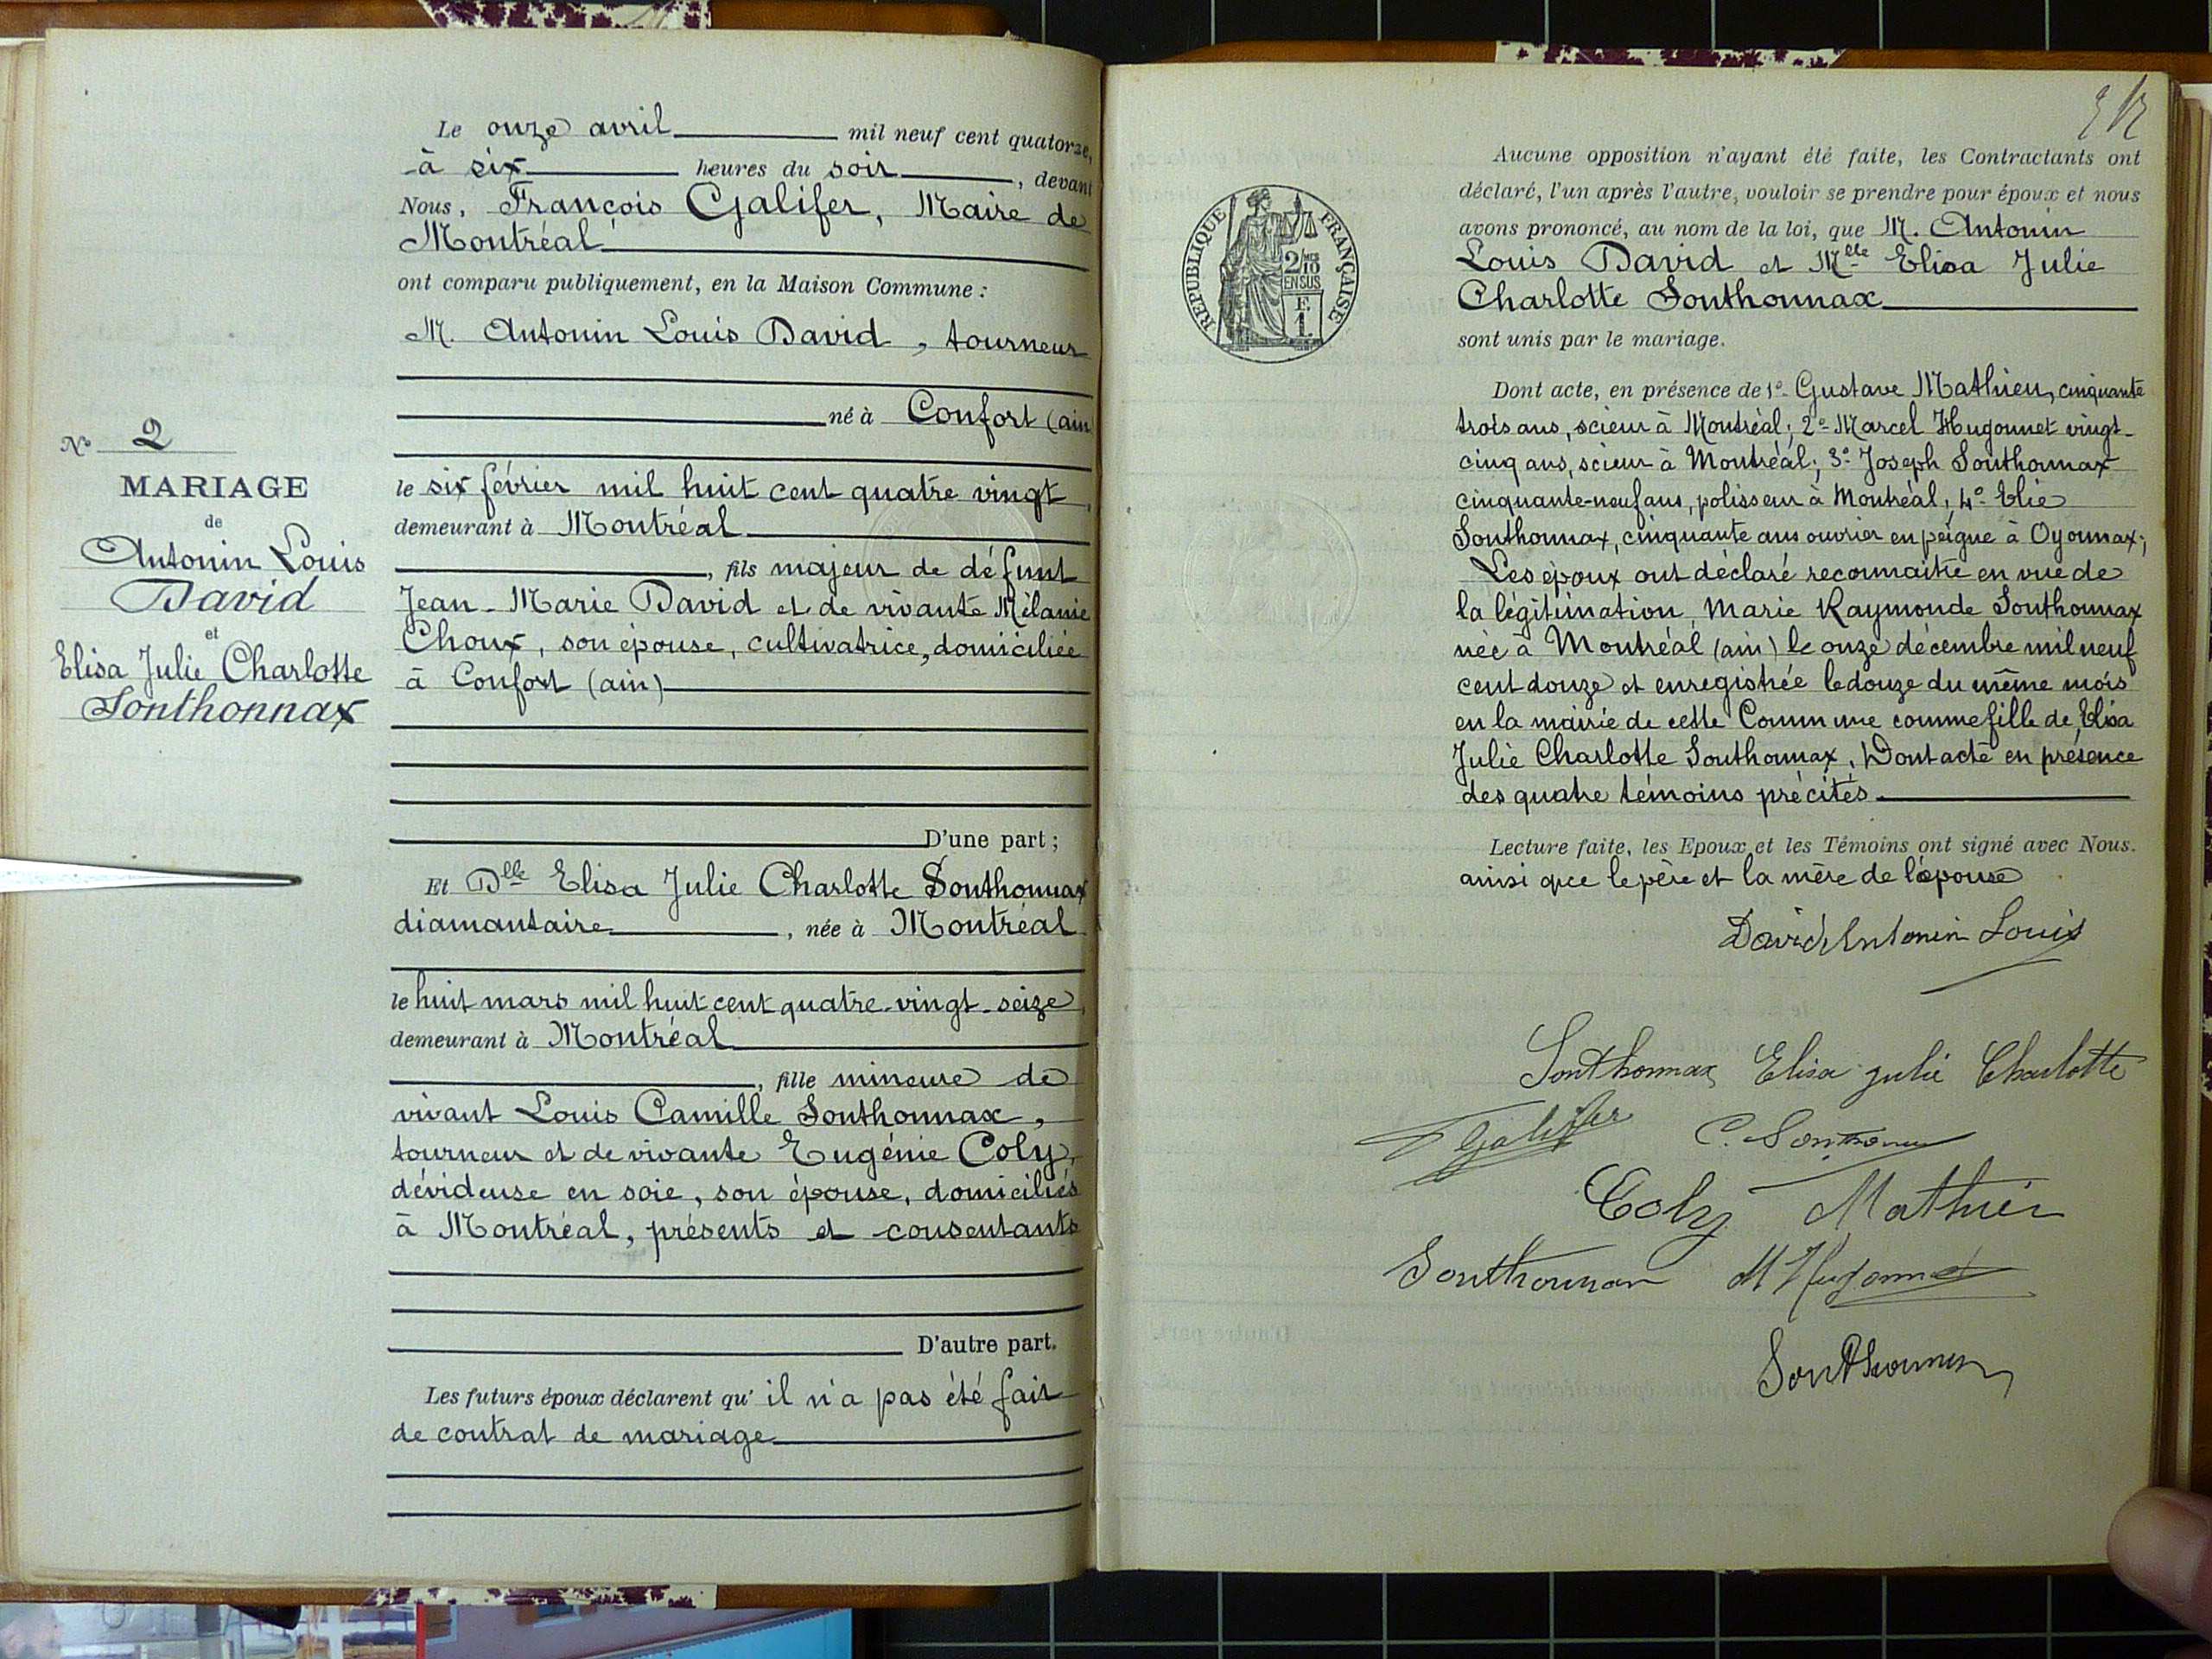 Le onze avril mil neuf cent quatorze,
à six heures du soir, devant
Nous, François Galifer, Maire de
Montréal
ont comparu publiquement, en la Maison Commune :
M. Antonin Louis David, tourneur
né à Confort (ain)
le six février mil huit cent quatre vingt,
demeurant à Montréal
, fils majeur de défunt
Jean-Marie David et de vivante Mélanie
Choux, son épouse, cultivatrice, domiciliée
à Confort (ain)
D'une part ;
Et Dlle Elisa Julie Charlotte Sonthonnax
diamantaire, née à Montréal
le huit mars mil huit cent quatre-vingt-seize,
demeurant à Montréal
, fille mineure de
vivant Louis Camille Sonthonnax,
tourneur et de vivante Eugénie Coly,
dévideuse en soie, son épouse, domiciliés
à Montréal, présents et consentants
D'autre part.
Les futurs époux déclarent qu'il n'a pas été fait
de contrat de mariage
No 2
MARIAGE
de
Antonin Louis
David
et
Elisa Julie Charlotte
Sonthonnax
RÉPUBLIQUE FRANÇAISE
2/10 MES
EN SUS
F.
1.
Aucune opposition n'ayant été faite, les Contractants ont
déclaré, l'un après l'autre, vouloir se prendre pour époux et nous
avons prononcé, au nom de la loi, que M. Antonin
Louis David et Mlle Elisa Julie
Charlotte Sonthonnax
sont unis par le mariage.
Dont acte, en présence de 1o- Gustave Mathieu, cinquante
trois ans, scieur à Montréal; 2o- Marcel Hugonnet vingt-
cinq ans, scieur à Montréal; 3o- Joseph Sonthonnax
cinquante-neuf ans, polisseur à Montréal; 4o- Elie
Sonthonnax, cinquante ans ouvrier en peigne à Oyonnax;
Les époux ont déclaré reconnaitre en vue de
la légitimation, Marie Raymonde Sonthonnax
née à Montréal (ain) le onze décembre mil neuf
cent douze et enregistrée le douze du même mois
en la mairie de cette Commune comme fille de Elisa
Julie Charlotte Sonthonnax. Dont acte en présence
des quatre témoins précités
Lecture faite, les Epoux et les Témoins ont signé avec Nous.
ainsi que le père et la mère de l'épouse
David Antonin Louis
Sonthonnax Elisa julie Charlotte
Galifer C. Sonthonnax
Coly Mathieu
Sonthonnax M Hugonnet
Sonthonnax